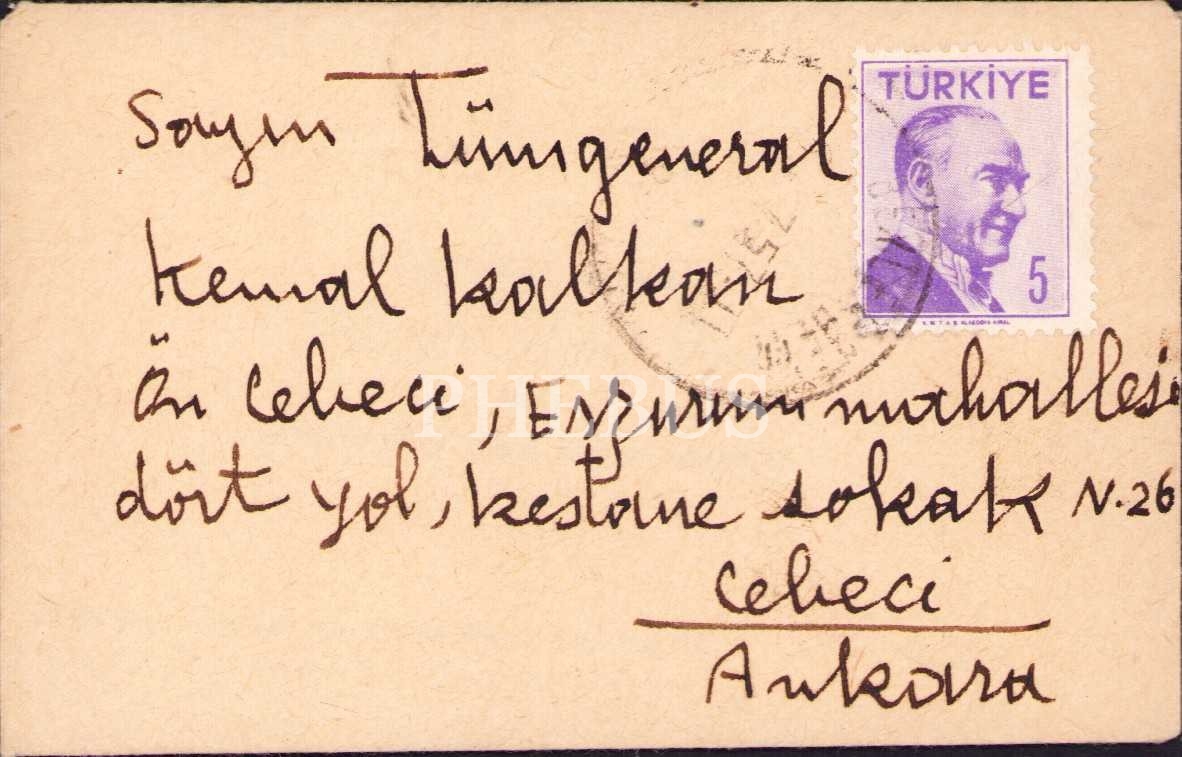 Sayın Tümgeneral
TÜRKİYE
Kemal Kalkan
5
Ön Cebeci, Erzurum mahallesi
PHEBUS
dört yol, kestane sokak N.26
Cebeci
Ankara